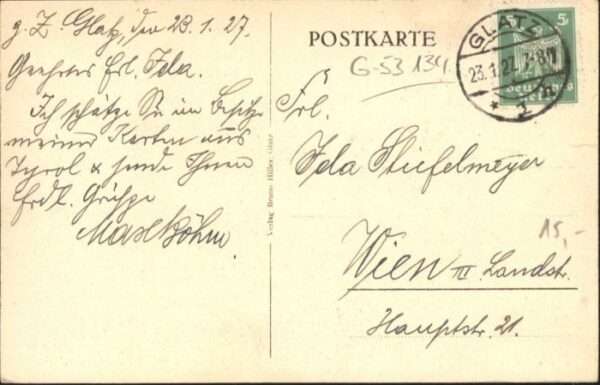 z. Z. Glatz, den 23.1.27.
Geehrtes Frl. Ida.
Ich schätze Sie im Besitze
meiner Karten aus
Tyrol & sende Ihnen
frdl. Grüsse
Max Böhm.
Verlag Bruno Hübner, Glatz
POSTKARTE
G-53 134.
Frl.
Ida Stiefelmeyer
Wien III. Landstr.
Hauptstr. 21.
15,-
GLATZ
23.1.27. 7-8N
* 1 n
5